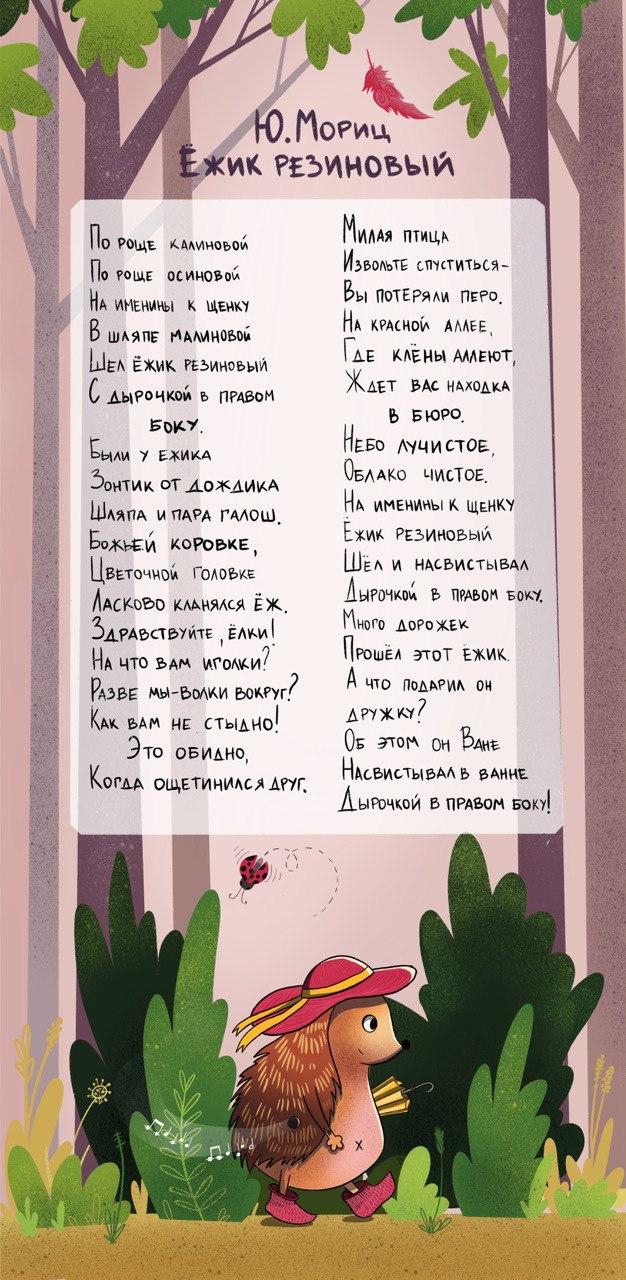 Ю. Мориц
Ёжик резиновый
По роще калиновой
По роще осиновой
На именины к щенку
В шляпе малиновой
Шел ёжик резиновый
С дырочкой в правом
боку.
Были у ежика
Зонтик от дождика
Шляпа и пара галош.
Божьей коровке,
Цветочной головке
Ласково кланялся ёж.
Здравствуйте, ёлки!
На что вам иголки?
Разве мы-волки вокруг?
Как вам не стыдно!
Это обидно,
Когда ощетинился друг.
Милая птица
Извольте спуститься-
Вы потеряли перо.
На красной аллее,
Где клёны аллеют,
Ждет вас находка
в бюро.
Небо лучистое,
Облако чистое.
На именины к щенку
Ёжик резиновый
Шёл и насвистывал
Дырочкой в правом боку.
Много дорожек
Прошёл этот ёжик.
А что подарил он
дружку?
Об этом он Ване
Насвистывал в ванне
Дырочкой в правом боку!